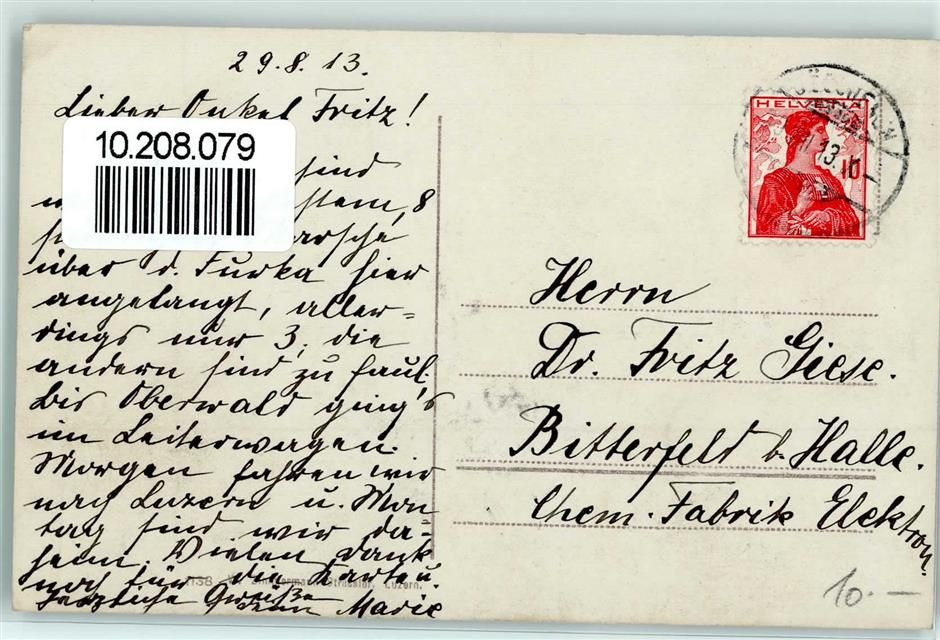 29.8.13.
Lieber Onkel Fritz!
10.208.079
sind
8
über d. Furka hier
angelangt, aller-
dings nur 3, die
andern sind zu faul,
bis Oberwald ging's
im Leiterwagen.
Morgen fahren wir
nach Luzern u. Mon
tag sind wir da-
heim. Vielen Dank
noch für die Karte u.
herzliche Grüsse
Marie
Luzern.
HELVETIA
13.
10
Herrn
Dr. Fritz Giese.
Bitterfeld b. Halle.
Chem. Fabrik Elektron.
10.-